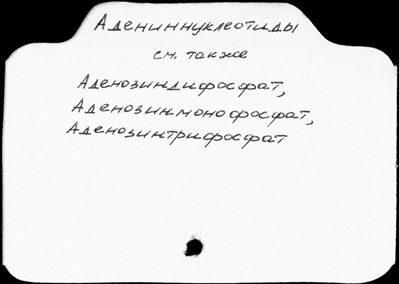 Адениннуклеотиды
см. также
Аденозиндифосфат,
Аденозинмонофосфат,
Аденозинтрифосфат